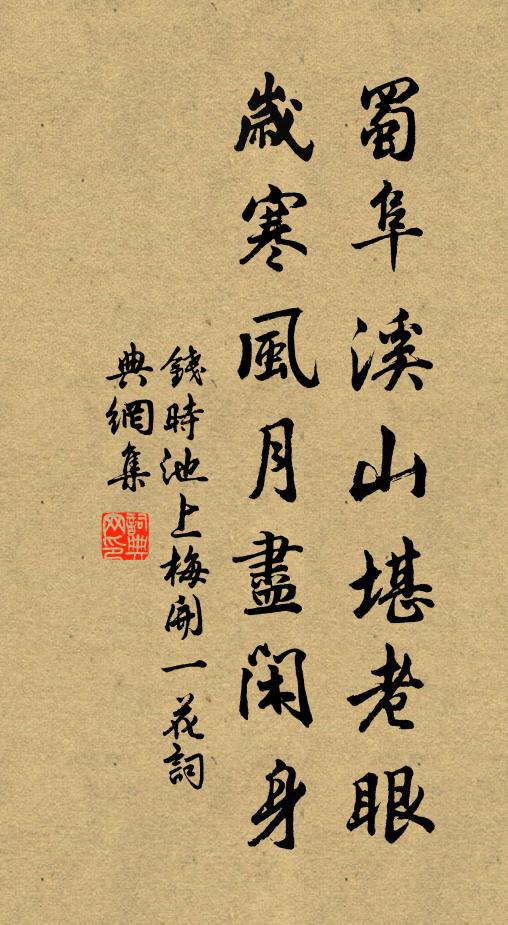 蜀阜溪山堪老眼
歲寒風月盡閑身
錢時池上梅開一花詞
典網集
詞典網印